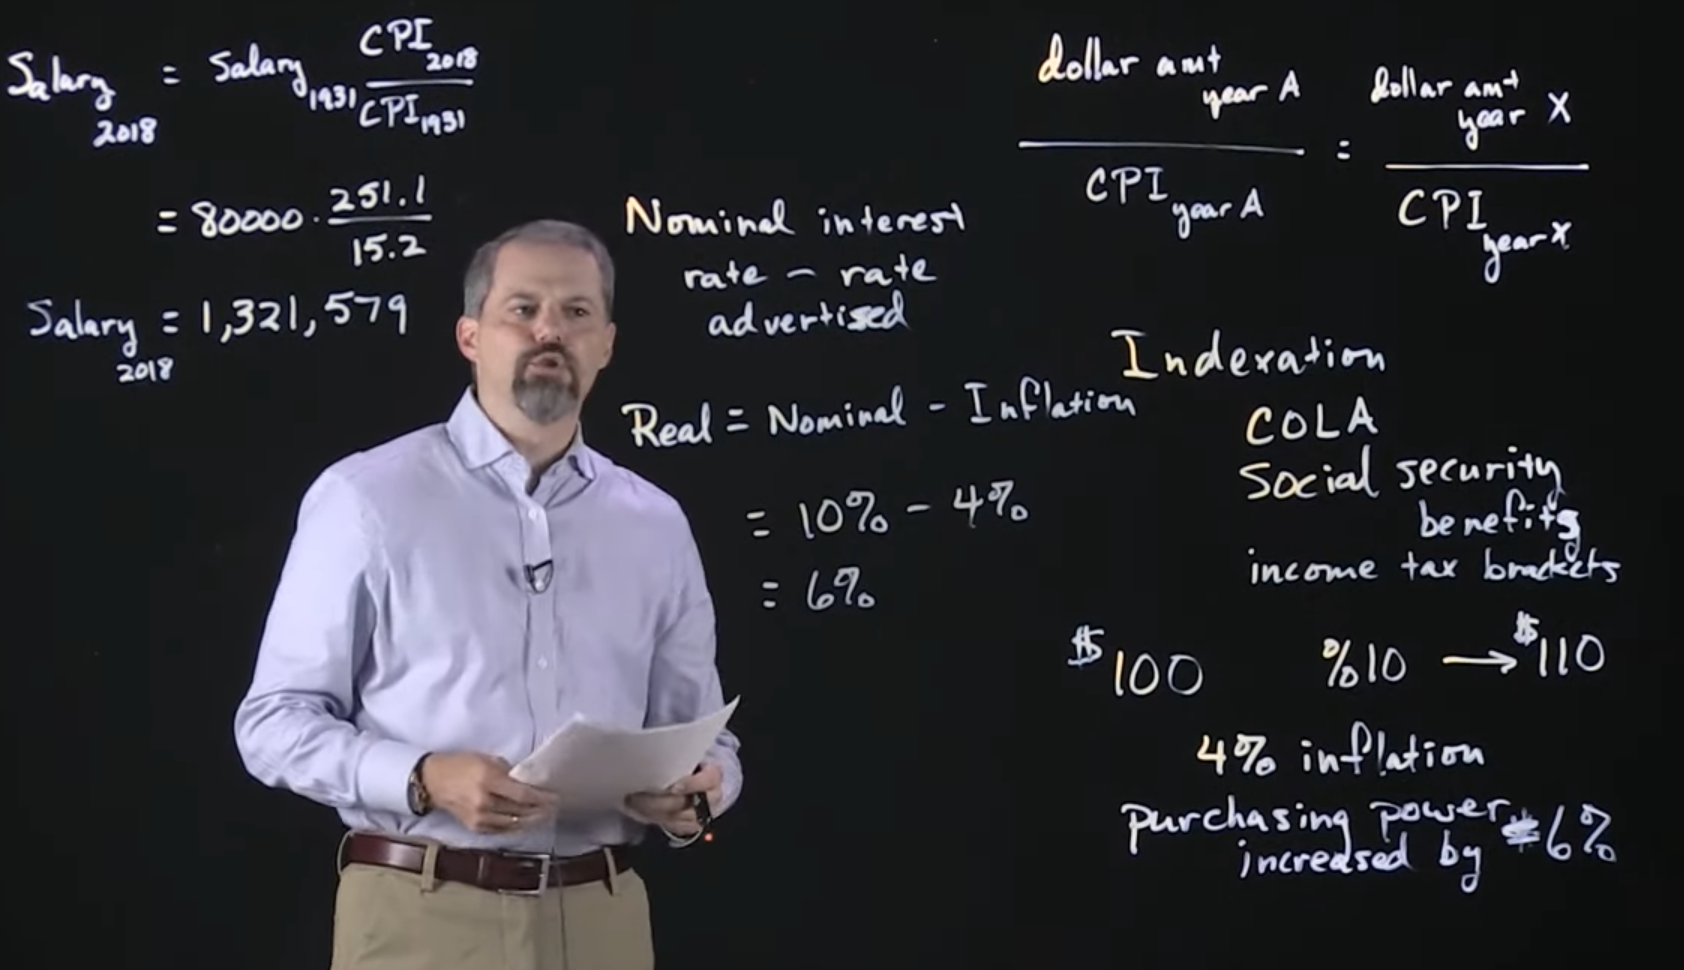 Salary 2018 = Salary 1931 CPI 2018 / CPI 1931
= 80000 · 251.1 / 15.2
Salary 2018 = 1,321,579
Nominal interest
rate – rate
advertised
Real = Nominal - Inflation
= 10% - 4%
= 6%
dollar amt year A / CPI year A = dollar amt year X / CPI year X
Indexation
COLA
Social security
benefits
income tax brackets
$100 %10 → $110
4% inflation
purchasing power
increased by 6%